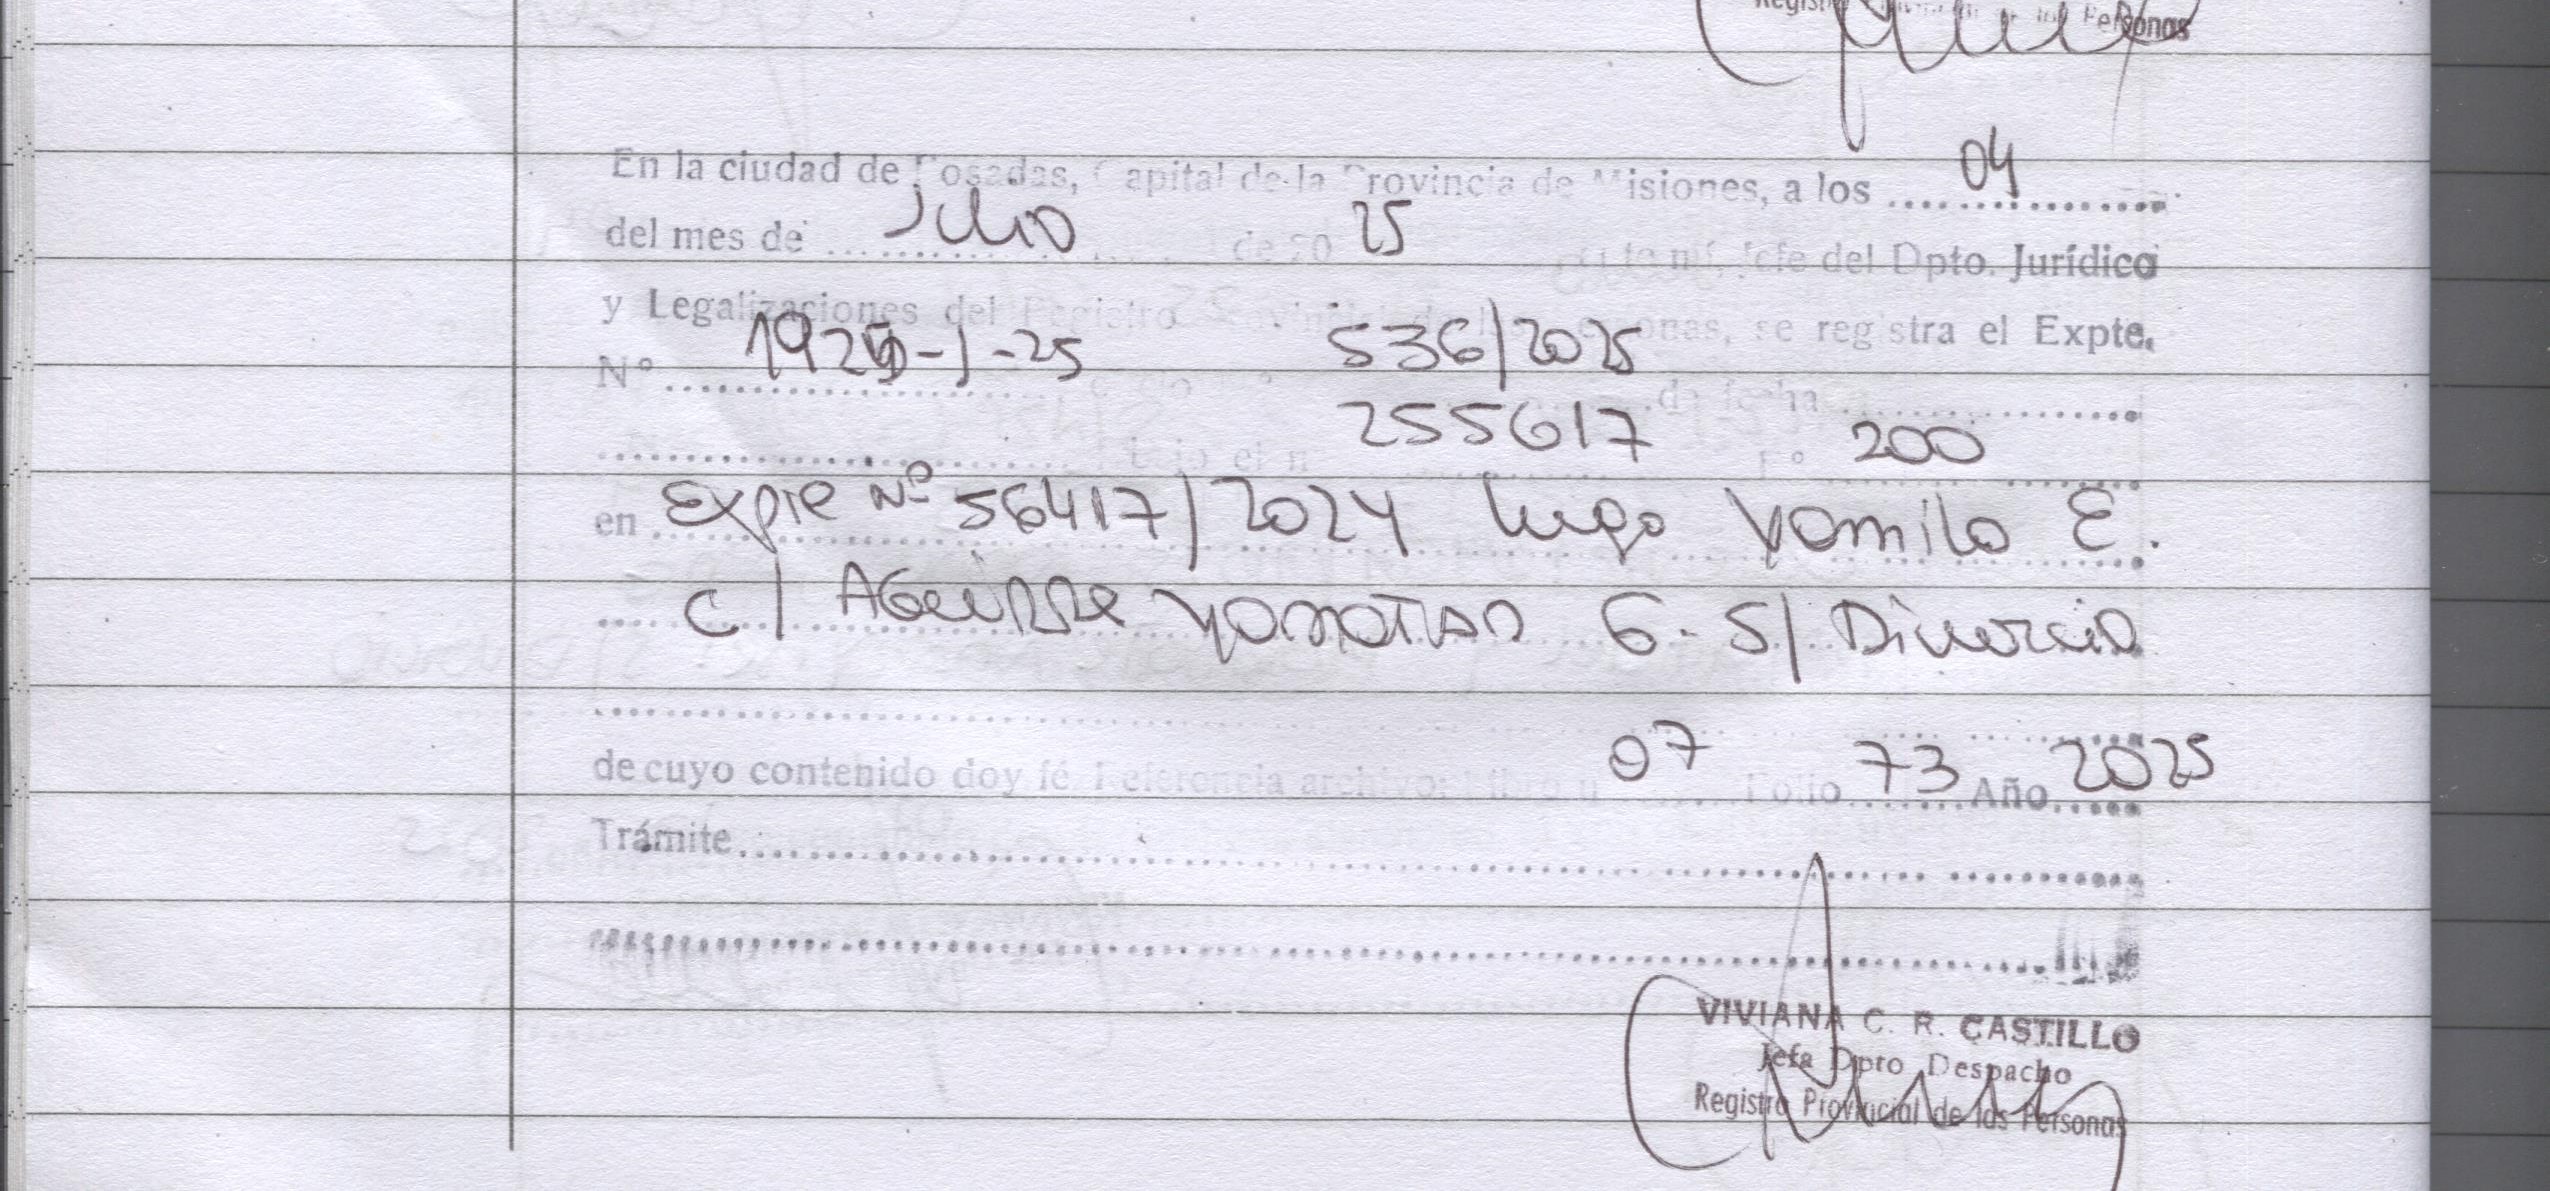 Personas
En la ciudad de Posadas, Capital de la Provincia de Misiones, a los 04
del mes de Julio de 20 25 Jefe del Dpto. Jurídico
y Legalizaciones del Registro Provincial de las Personas, se registra el Expte.
Nº -J-25 536/2025 de fecha
255617 Fº 200
en Expte Nº 56417/2024 Lugo Yamila E.
c/ Aguirre Yonatan G. S/ Divorcio
de cuyo contenido doy fé. Referencia archivo: Libro n 07 Folio 73 Año 2025
Trámite
VIVIANA C. R. CASTILLO
Jefa Dpto Despacho
Registro Provincial de las Personas